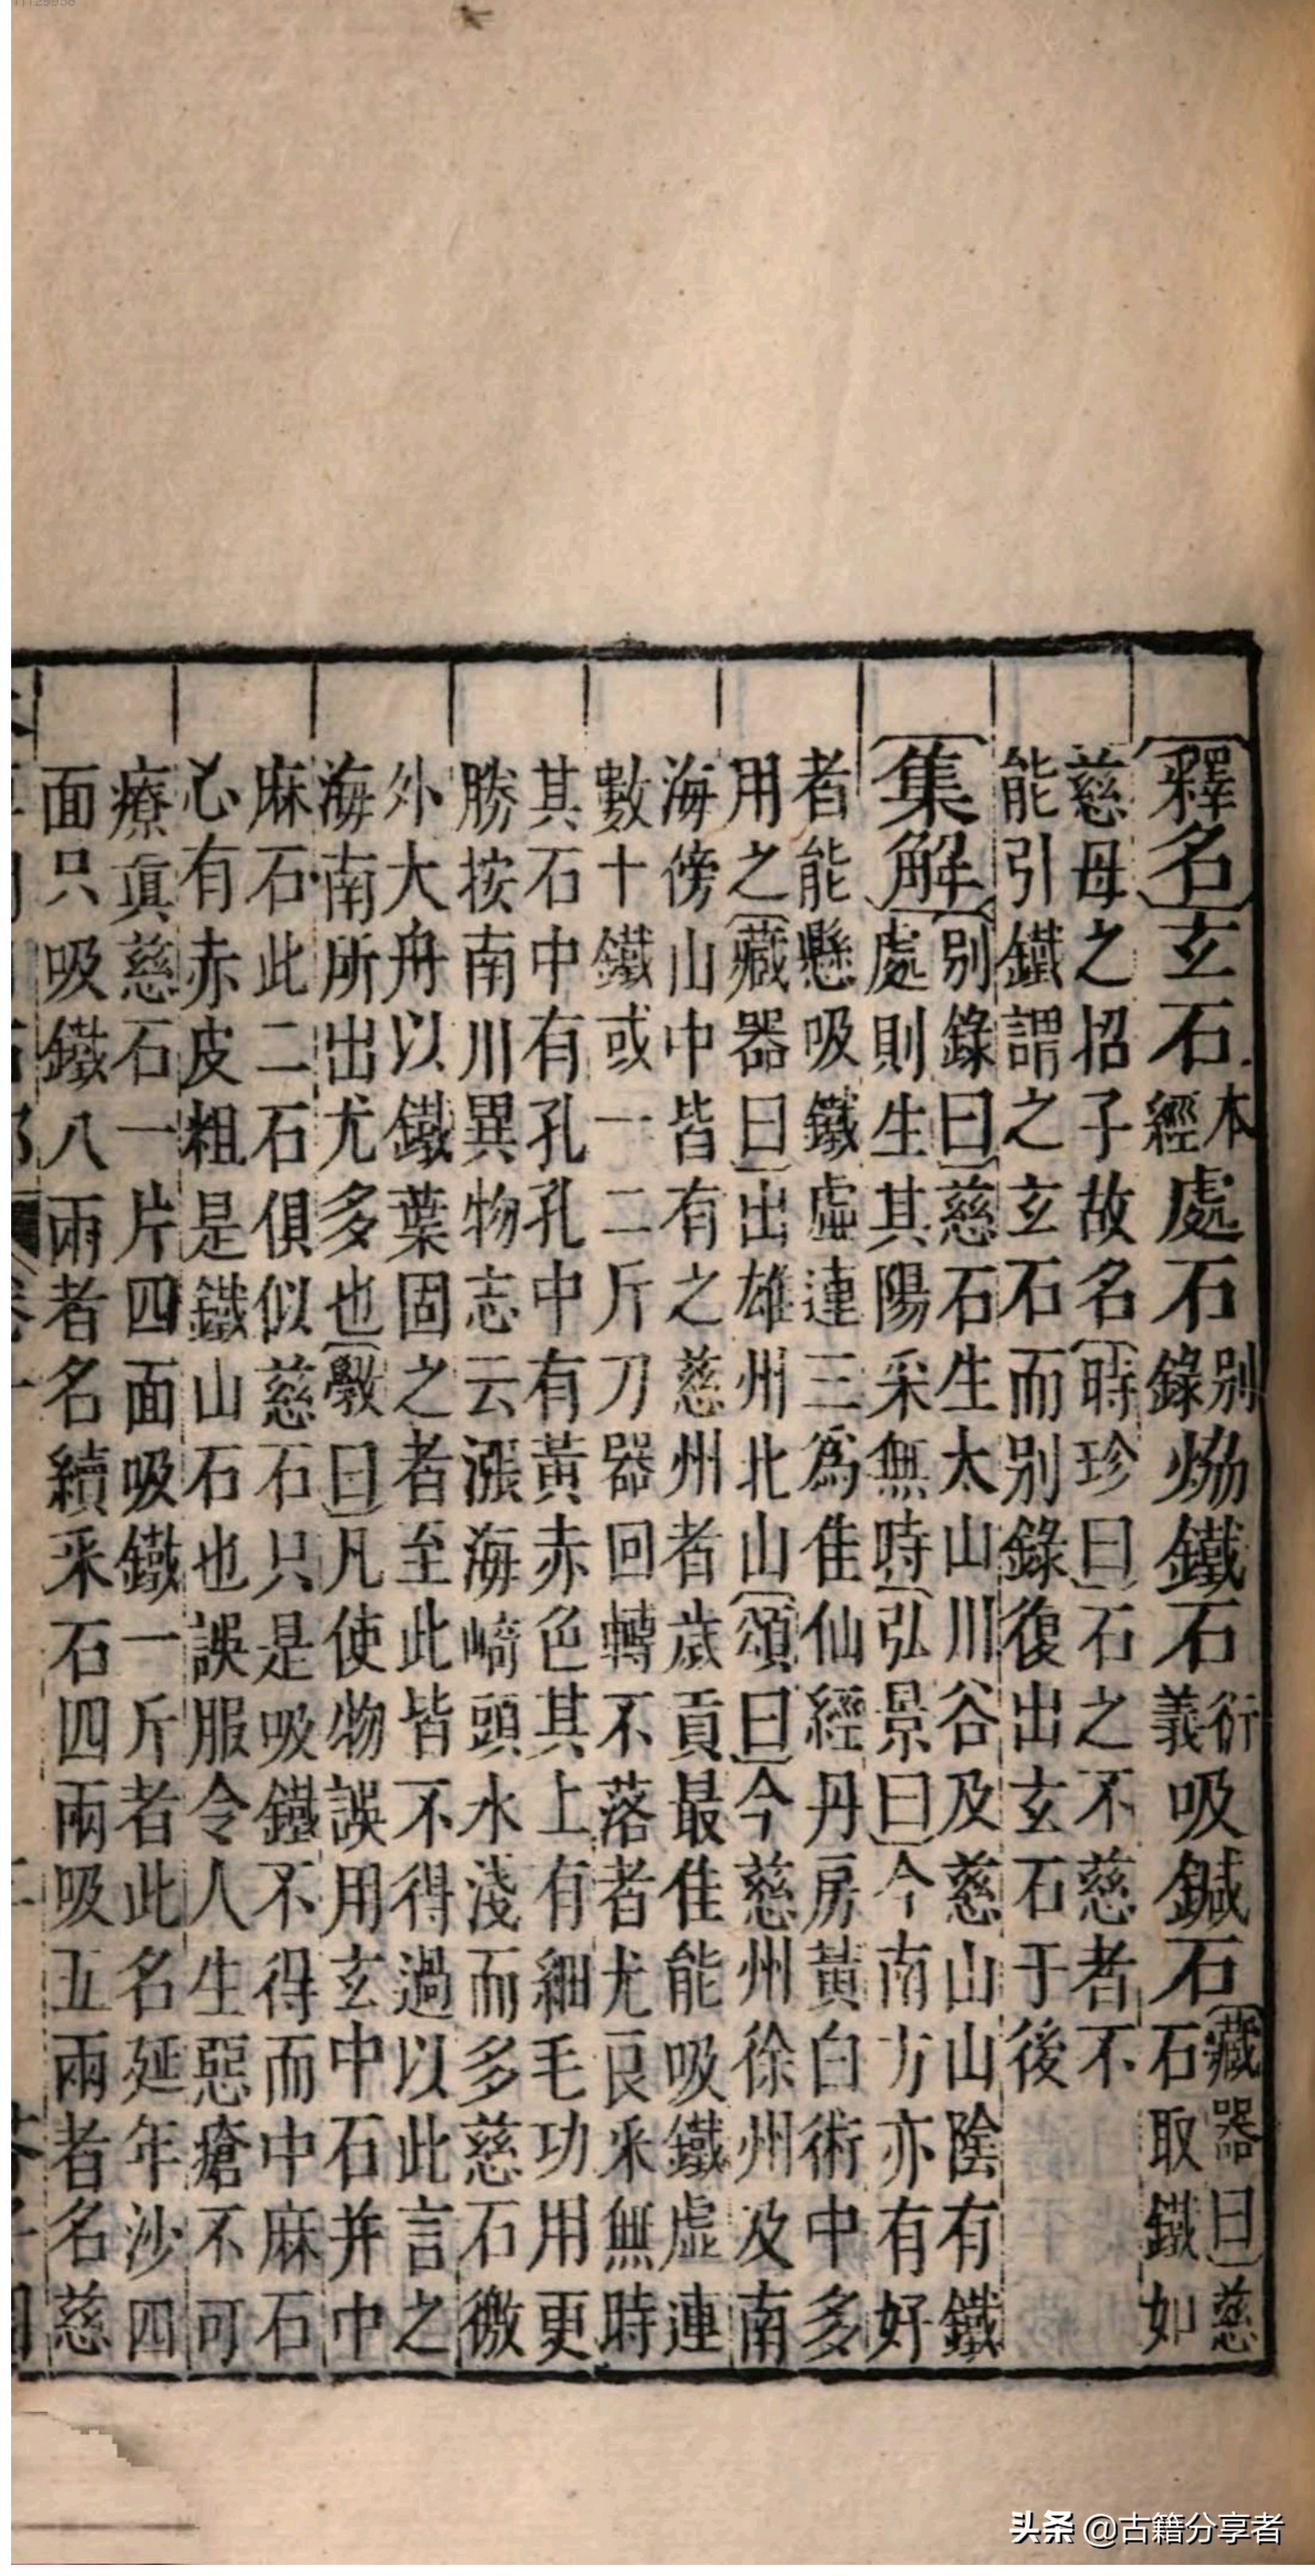 〔釋名〕玄石本經處石別錄熁鐵石衍義吸鍼石〔藏器曰〕慈石取鐵如
慈母之招子故名〔時珍曰〕石之不慈者不
能引鐵謂之玄石而别錄復出玄石于後
〔集解〕〔别錄曰〕慈石生太山川谷及慈山山陰有鐵
處則生其陽采無時〔弘景曰〕今南方亦有好
者能懸吸鐵虛連三為佳仙經丹房黃白術中多
用之〔藏器曰〕出雄州北山〔頌曰〕今慈州徐州及南
海傍山中皆有之慈州者歲貢最佳能吸鐵虛連
數十鐵或一二斤刀器回轉不落者尤良采無時
其石中有孔孔中有黃赤色其上有細毛功用更
勝按南川異物志云漲海崎頭水淺而多慈石徼
外大舟以鐵葉固之者至此皆不得過以此言之
海南所出尤多也〔斅曰〕凡使物誤用玄中石并中
麻石此二石俱似慈石只是吸鐵不得而中麻石
心有赤皮粗是鐵山石也誤服令人生惡瘡不可
療真慈石一片四面吸鐵一斤者此名延年沙四
面只吸鐵八兩者名續采石四兩吸五兩者名慈
头条 @古籍分享者